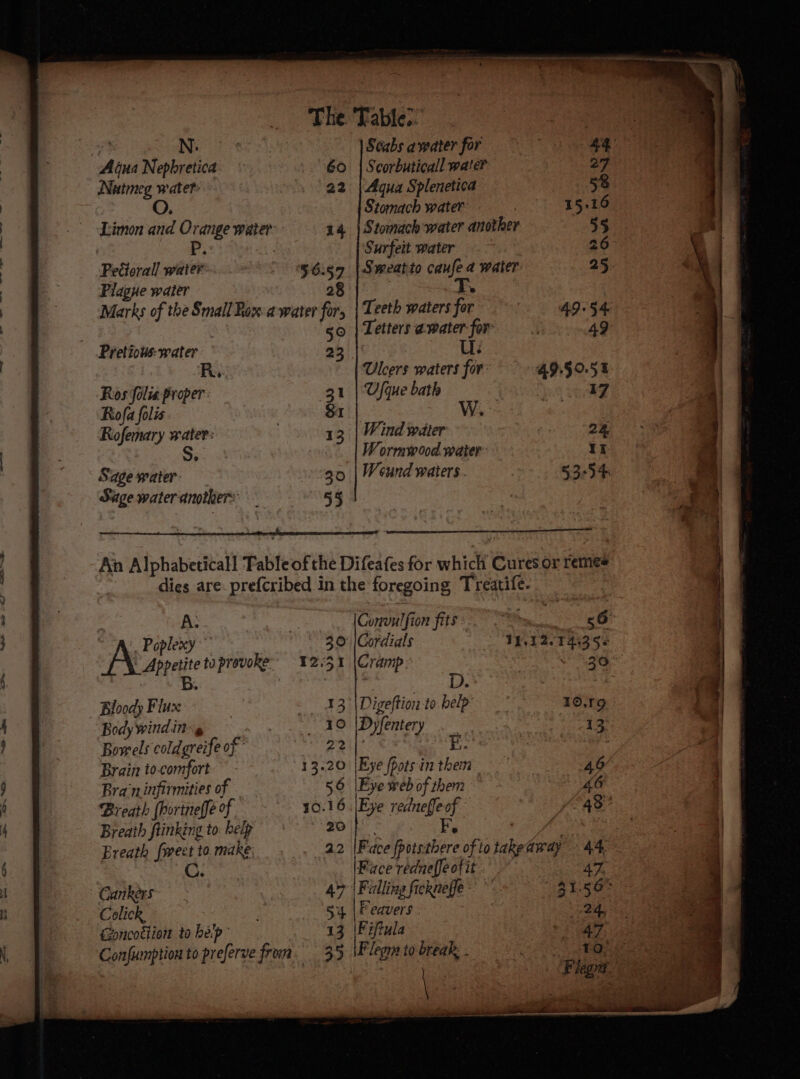 The Table.
N.
Aqua Nephretica 60
Nutmeg water 22
O.
Limon and Orange water 14
P.
Pectorall water 56.57
Plague water 28
Marks of the Small Pox a water for,
50
Pretious water 23
R.
Ros folis proper 31
Rosa folis 81
Rosemary water 13
S.
Sage water 30
Sage water another 55
Scabs a water for 44
Scorbuticall water 27
Aqua Splenetica 58
Stomach water 15.16
Stomach water another 55
Surfeit water 26
Sweat to cause a water 25
T.
Teeth waters for 49.54
Tetters a water for 49
U.
Ulcers waters for 49.50.51
Usque bath 17
W.
Wind water 24
Wormwood water 11
Wound waters 53.54
An Alphabeticall Table of the Diseases for which Cures or reme-
dies are prescribed in the foregoing Treatise.
A.
APoplexy 30
Appetite to provoke 12.31
B.
Bloody Flux 13
Body winding 10
Bowels cold greife of 22
Brain to comfort 13.20
Brain infirmities of 56
Breath shortnesse of 10.16
Breath stinking to help 20
Breath sweet to make 22
C.
Cankers 47
Colick 54
Concoction to help 13
Consumption to preserve from 35
Convulsion fits 56
Cordials 11.12.14.35
Cramp 30
D.
Digestion to help 10.19
Dysentery 13
E.
Eye spots in them 46
Eye web of them 46
Eye rednesse of 48
F.
Face spots there of to take away 44
Face rednesse of it 47
Falling sicknesse 31.56
Feavers 24
Fistula 47
Flegm to break 10
Flegm